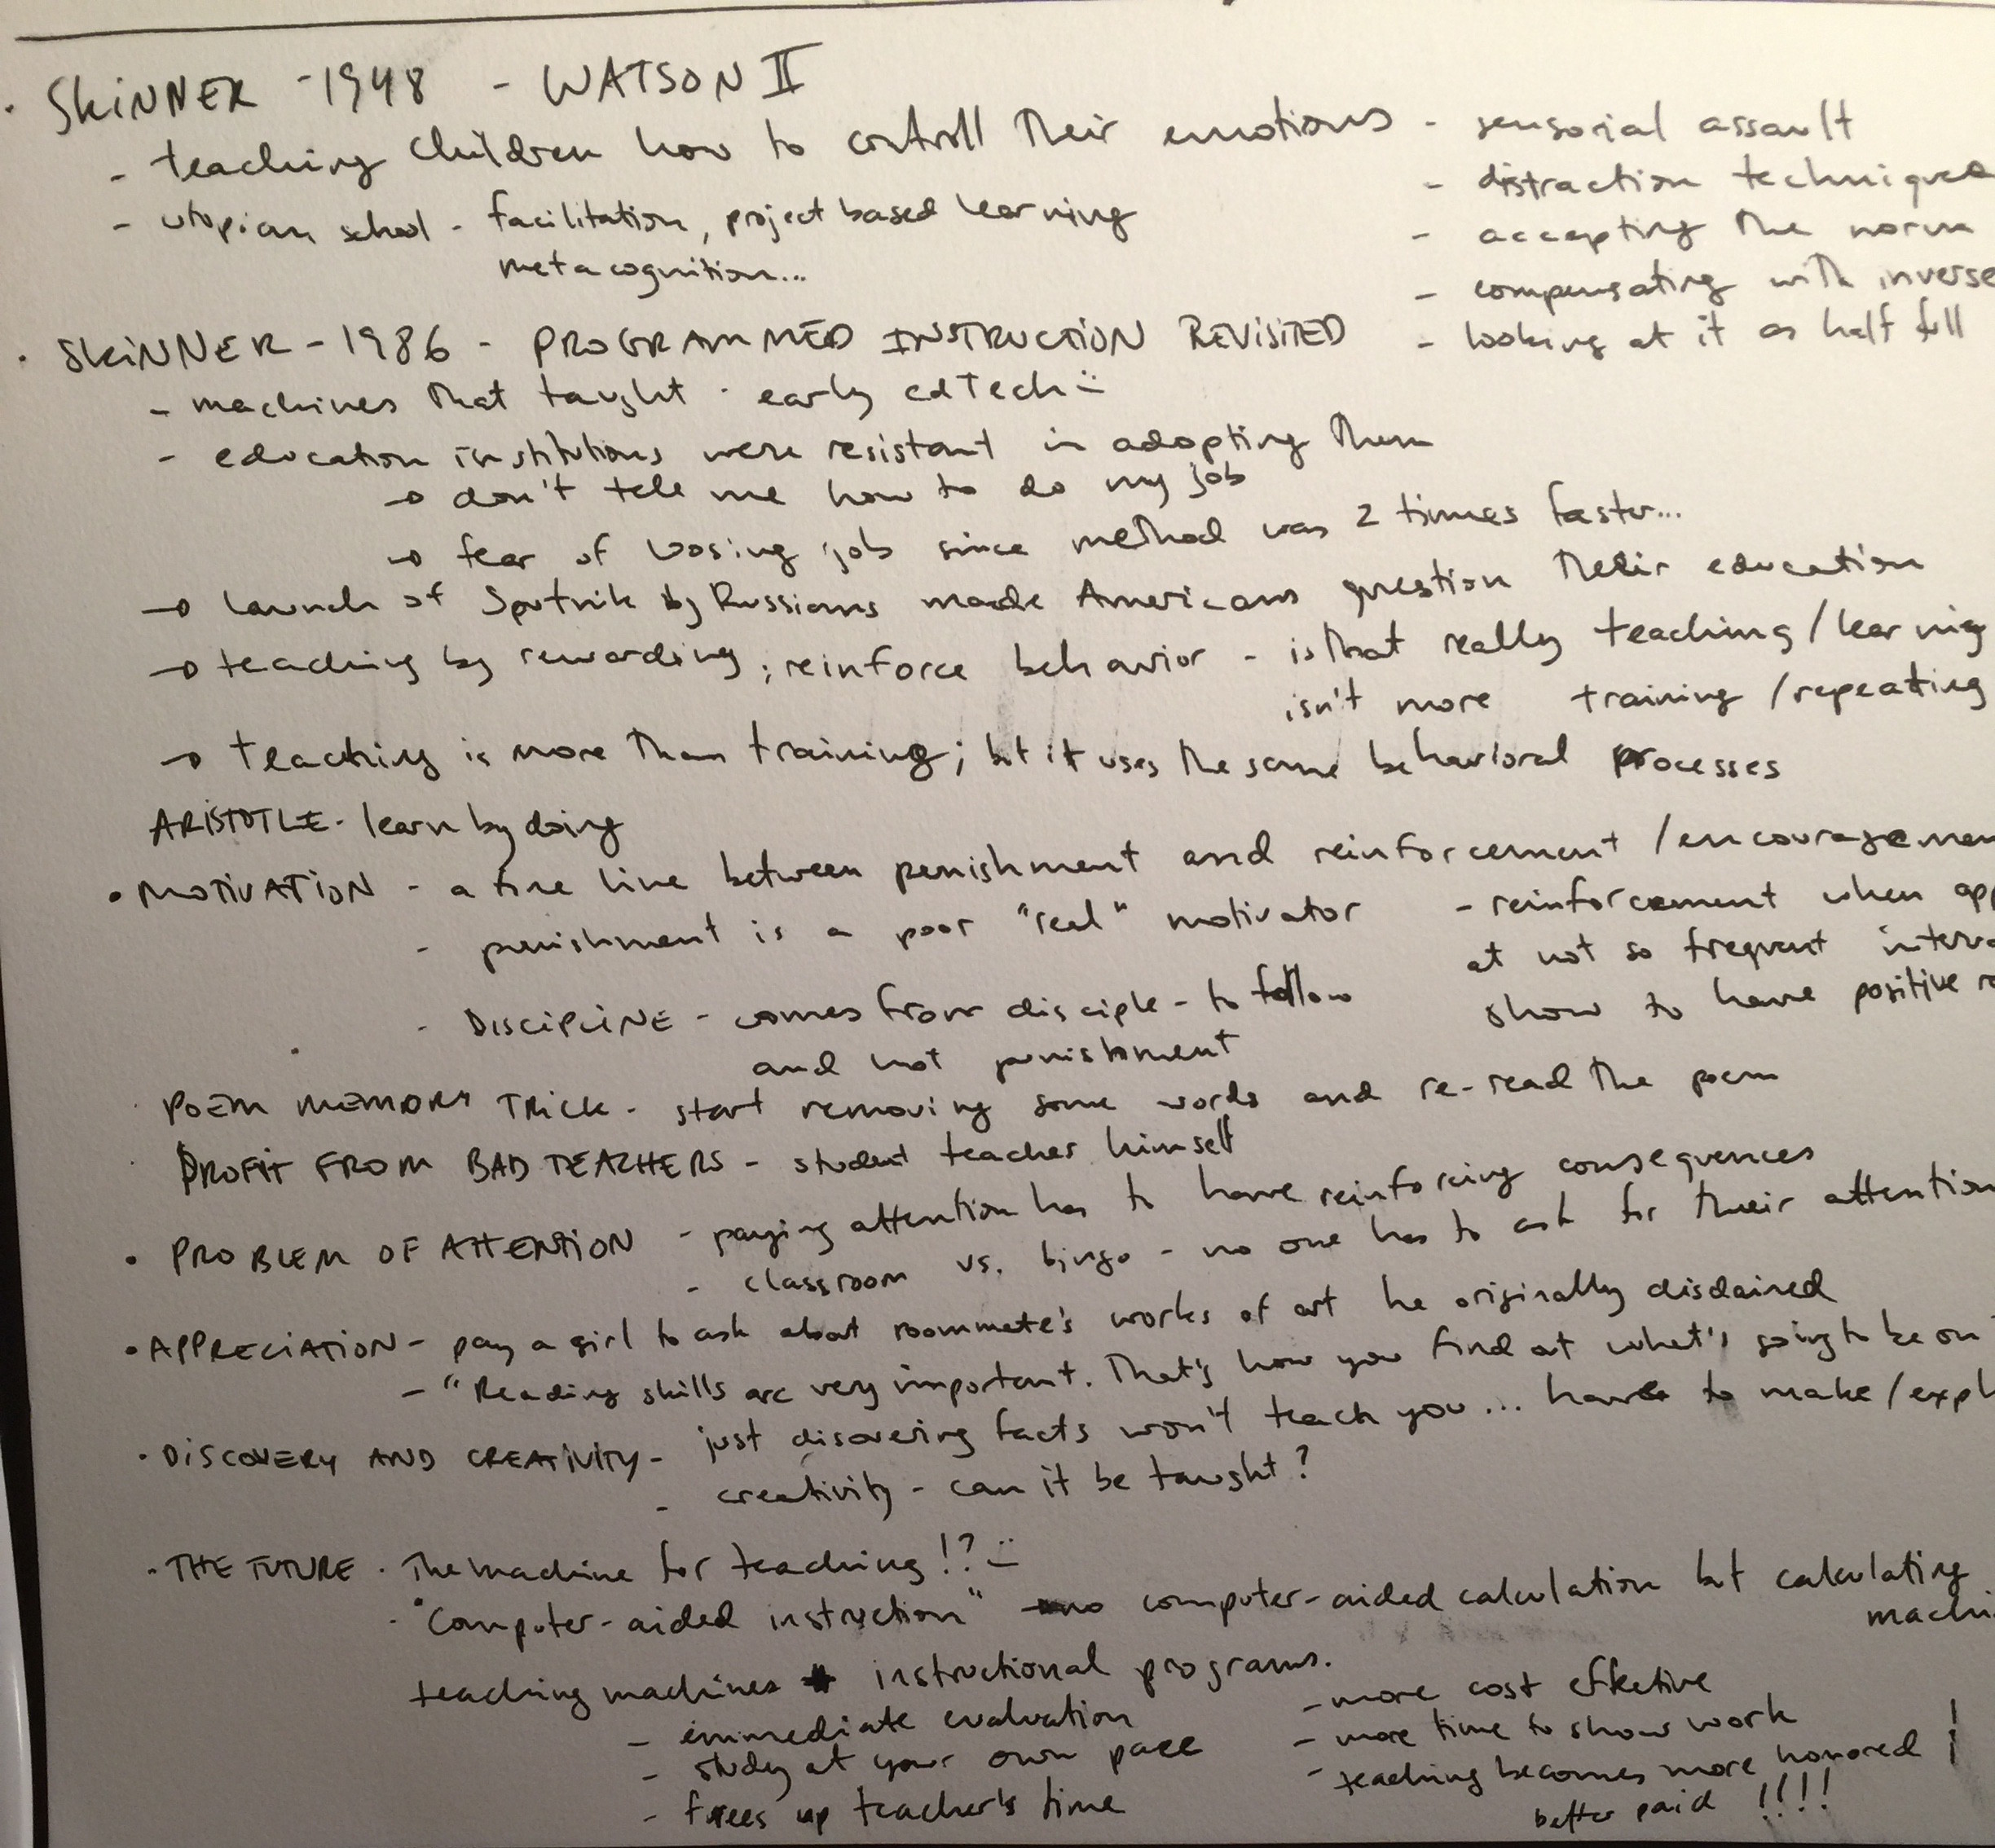 · SKINNER - 1948 - WATSON II
- teaching children how to controll their emotions - sensorial assault
- distraction techniques
- utopian school - facilitation, project based learning
- accepting the norm
metacognition...
- compensating with inverse
· SKINNER - 1986 - PROGRAMMED INSTRUCTION REVISITED
- looking at it as half full
- machines that taught - early edTech :)
- education institutions were resistant in adopting them
→ don't tell me how to do my job
→ fear of loosing job since method was 2 times faster...
→ launch of Sputnik by Russians made Americans question their education
→ teaching by rewarding; reinforce behavior - is that really teaching/learning
isn't more training/repeating
→ teaching is more than training; but it uses the same behavioral processes
ARISTOTLE - learn by doing
• MOTIVATION - a fine line between punishment and reinforcement /encouragemen
- punishment is a poor "real" motivator
- reinforcement when app
at not so frequent interv
show to have positive r
- DISCIPLINE - comes from disciple - to follow
and not punishment
· POEM MEMORY TRICK - start removing some words and re-read the poem
· PROFIT FROM BAD TEACHERS - student teacher himself
• PROBLEM OF ATTENTION - paying attention has to have reinforcing consequences
- classroom vs. bingo - no one has to ask for their attention
• APPRECIATION - pay a girl to ask about roommate's works of art he originally disdained
- "Reading skills are very important. That's how you find out what's going to be on
· DISCOVERY AND CREATIVITY - just discovering facts won't teach you... have to make/expl
- creativity - can it be taught?
· THE FUTURE - The machine for teaching!? :)
- "Computer-aided instruction" no computer-aided calculation but calculating
machi
teaching machines instructional programs.
- immediate evaluation
- study at your own pace
- frees up teacher's time
- more cost effective
- more time to show work
- teaching becomes more honored !
better paid !!!!